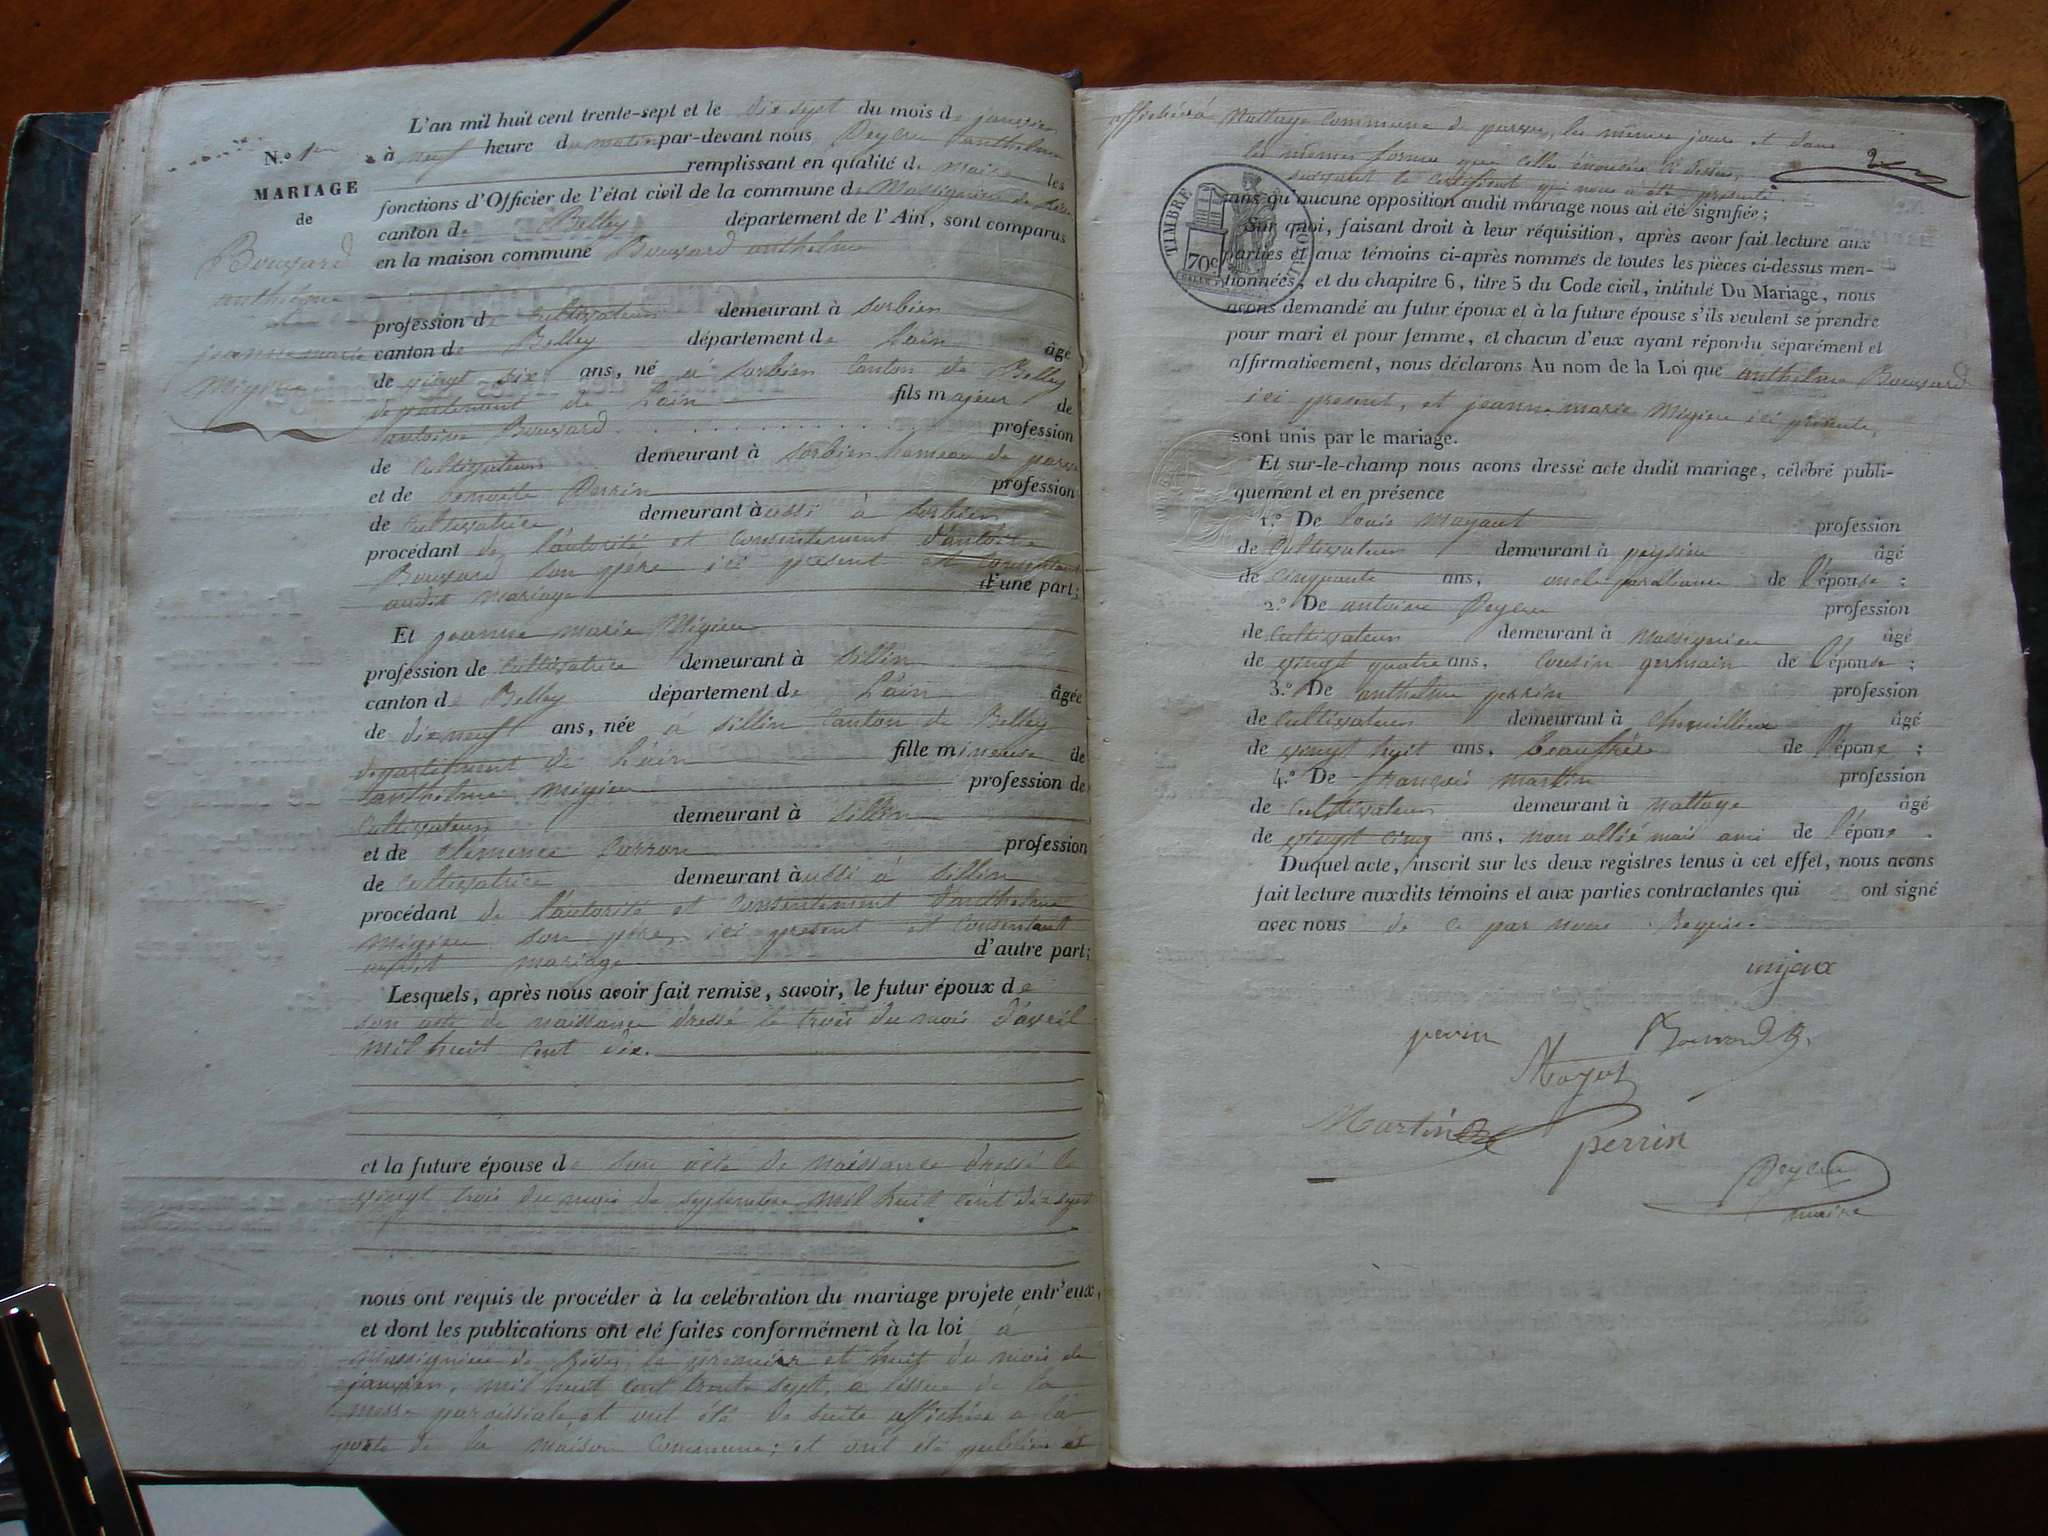 N.º 1er
MARIAGE
de
Bouvard
anthelme
et
jeanne marie
Migieu
L'an mil huit cent trente-sept et le dix sept du mois de janvier
à neuf heure du matin par-devant nous Peyieu anthelme
remplissant en qualité de maire les
fonctions d'Officier de l'état civil de la commune de Massignieu de
canton de Belley département de l'Ain, sont comparus
en la maison commune Bouvard anthelme
profession de cultivateur demeurant à sorbien
canton de Belley département de L'ain âgé
de vingt six ans, né a sorbien Canton de Belley
departement de L'ain fils majeur de
antoine Bouvard profession
de cultivateur demeurant à sorbien hameau de
et de benoite Perrin profession
de cultivatrice demeurant aussi à sorbien
procédant de l'autorité et consentement d'antoine
Bouvard son père ici présent et consentant
audit mariage d'une part;
Et jeanne marie Migieu
profession de cultivatrice demeurant à sillin
canton de Belley département de L'ain âgée
de dix neuf ans, née à sillin Canton de Belley
departement de L'ain fille mineure de
d'anthelme migieu profession de
cultivateur demeurant à sillin
et de clémence profession
de cultivatrice demeurant aussi à sillin
procédant de l'autorité et consentement d'anthelme
migieu son père, ici présent et consentant
audit mariage d'autre part;
Lesquels, après nous avoir fait remise, savoir, le futur époux de
son acte de naissance dressé le trois du mois d'avril
mil huit cent dix.
et la future épouse de son acte de naissance dressé le
vingt trois du mois de septembre mil huit cent dix sept
nous ont requis de procéder à la celébration du mariage projeté entr'eux,
et dont les publications ont eté faites conformément à la loi à
Massignieu de Rives, le premier et huit du mois de
janvier, mil huit cent trente sept, a l'issue de la
messe paroissiale et ont été de suite affichées a la
porte de la maison commune; et ont été publiées et
affichées à Nattage Commune de parves, les mêmes jours et dans
les mêmes formes que celle énoncée ci dessus,
suivant le certificat qui nous a été présenté.
2
TIMBRE ROYAL
70c
sans qu'aucune opposition audit mariage nous ait été signifiée;
Sur quoi, faisant droit à leur réquisition, après avoir fait lecture aux
parties et aux témoins ci-après nommés de toutes les pièces ci-dessus men-
tionnées, et du chapitre 6, titre 5 du Code civil, intitulé Du Mariage, nous
avons demandé au futur époux et à la future épouse s'ils veulent se prendre
pour mari et pour femme, et chacun d'eux ayant répondu séparément et
affirmativement, nous déclarons Au nom de la Loi que anthelme Bouvard
ici présent, et jeanne marie Migieu ici présente
sont unis par le mariage.
Et sur-le-champ nous avons dressé acte dudit mariage, célébré publi-
quement et en présence
1.º De louis Mayant profession
de cultivateur demeurant à peyzieu âgé
de cinquante ans, oncle par alliance de l'épouse;
2.º De antoine Peyieu profession
de cultivateur demeurant à Massignieu âgé
de vingt quatre ans, cousin germain de l'épouse;
3.º De anthelme perrin profession
de cultivateur demeurant à chemillieu âgé
de vingt huit ans, beaufrère de l'époux;
4.º De françois martin profession
de cultivateur demeurant à nattage âgé
de vingt cinq ans, non allié mais ami de l'époux.
Duquel acte, inscrit sur les deux registres tenus à cet effet, nous avons
fait lecture auxdits témoins et aux parties contractantes qui ont signé
avec nous de ce par nous Requis.
mijeux
perrin Bouvard B.
Mayot
Martin perrin
Peyieu
maire